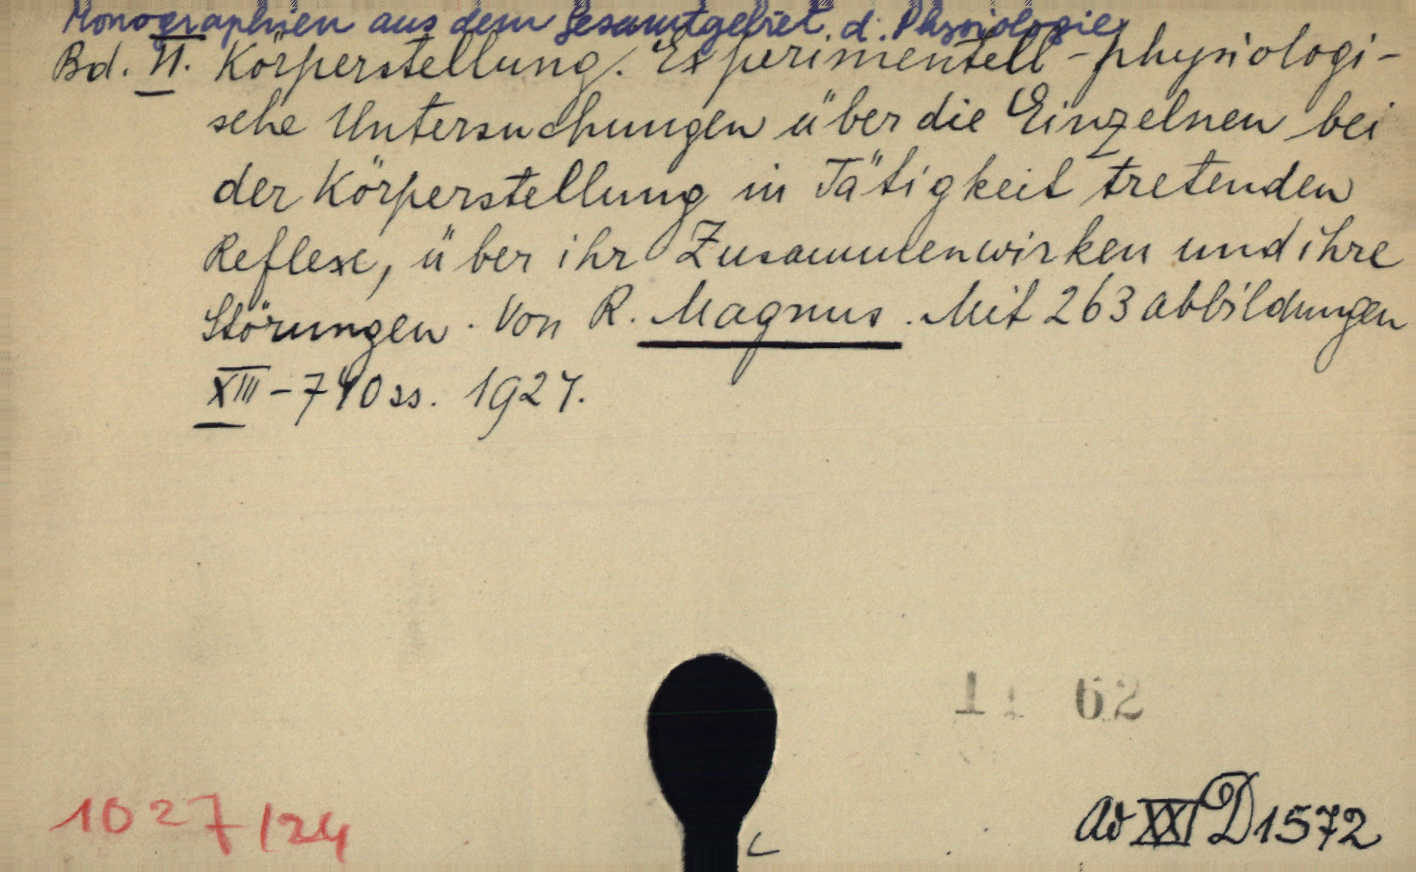 Monographien aus dem Gesamtgebiet. d. Physiologie
Bd. II. Körperstellung. Experimentell-physiologi-
sche Untersuchungen über die Einzelnen bei
der Körperstellung in Tätigkeit tretenden
Reflexe, über ihr Zusammenwirken und ihre
Störungen. Von R. Magnus. Mit 263 abbildungen
XIII-740 ss. 1924.
62
1027/24
ad XXI D 1572